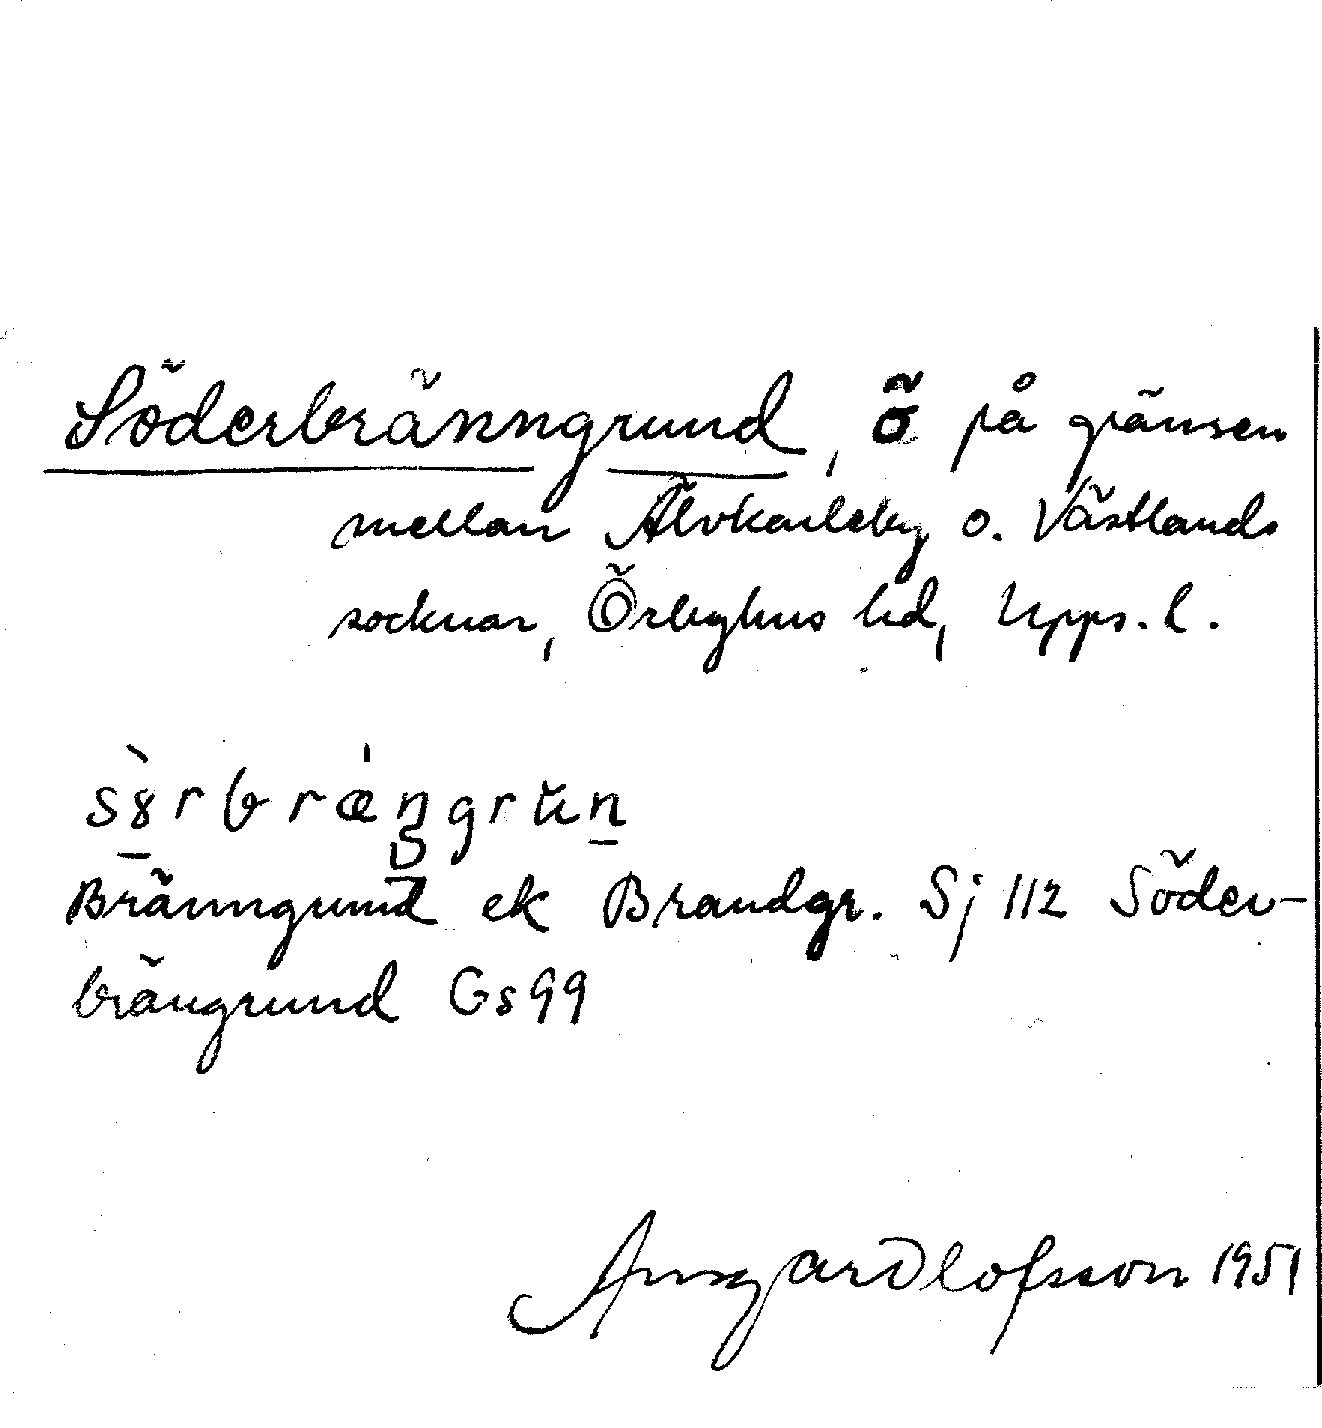 Söderbränngrund, ö på gränsen
mellan Älvkarleby o. Västlands
socknar, Örbyhus hd, Upps. l.
Bränngrund ek Brandgr. Sj 112 Söder-
brängrund Gs 99
Ansgard Olofsson 1951